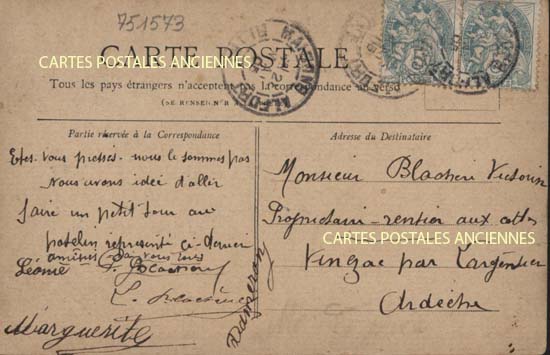 751573
CARTE POSTALE
CARTES POSTALES ANCIENNES
Tous les pays étrangers n'acceptent pas la correspondance au verso
(SE RENSEIGNER
Partie réservée à la Correspondance
Etes-vous pressés - nous le sommes pas
Nous avons idée d'aller
faire un petit tour au
patelin représenté ci-dernier
amitiés à vous tous
Léonie
Marguerite
MAISONS ALFORT
Adresse du Destinataire
Monsieur Blachère Victorin
Propriétaire-rentier aux
CARTES POSTALES ANCIENNES
par Largentière
Ardèche